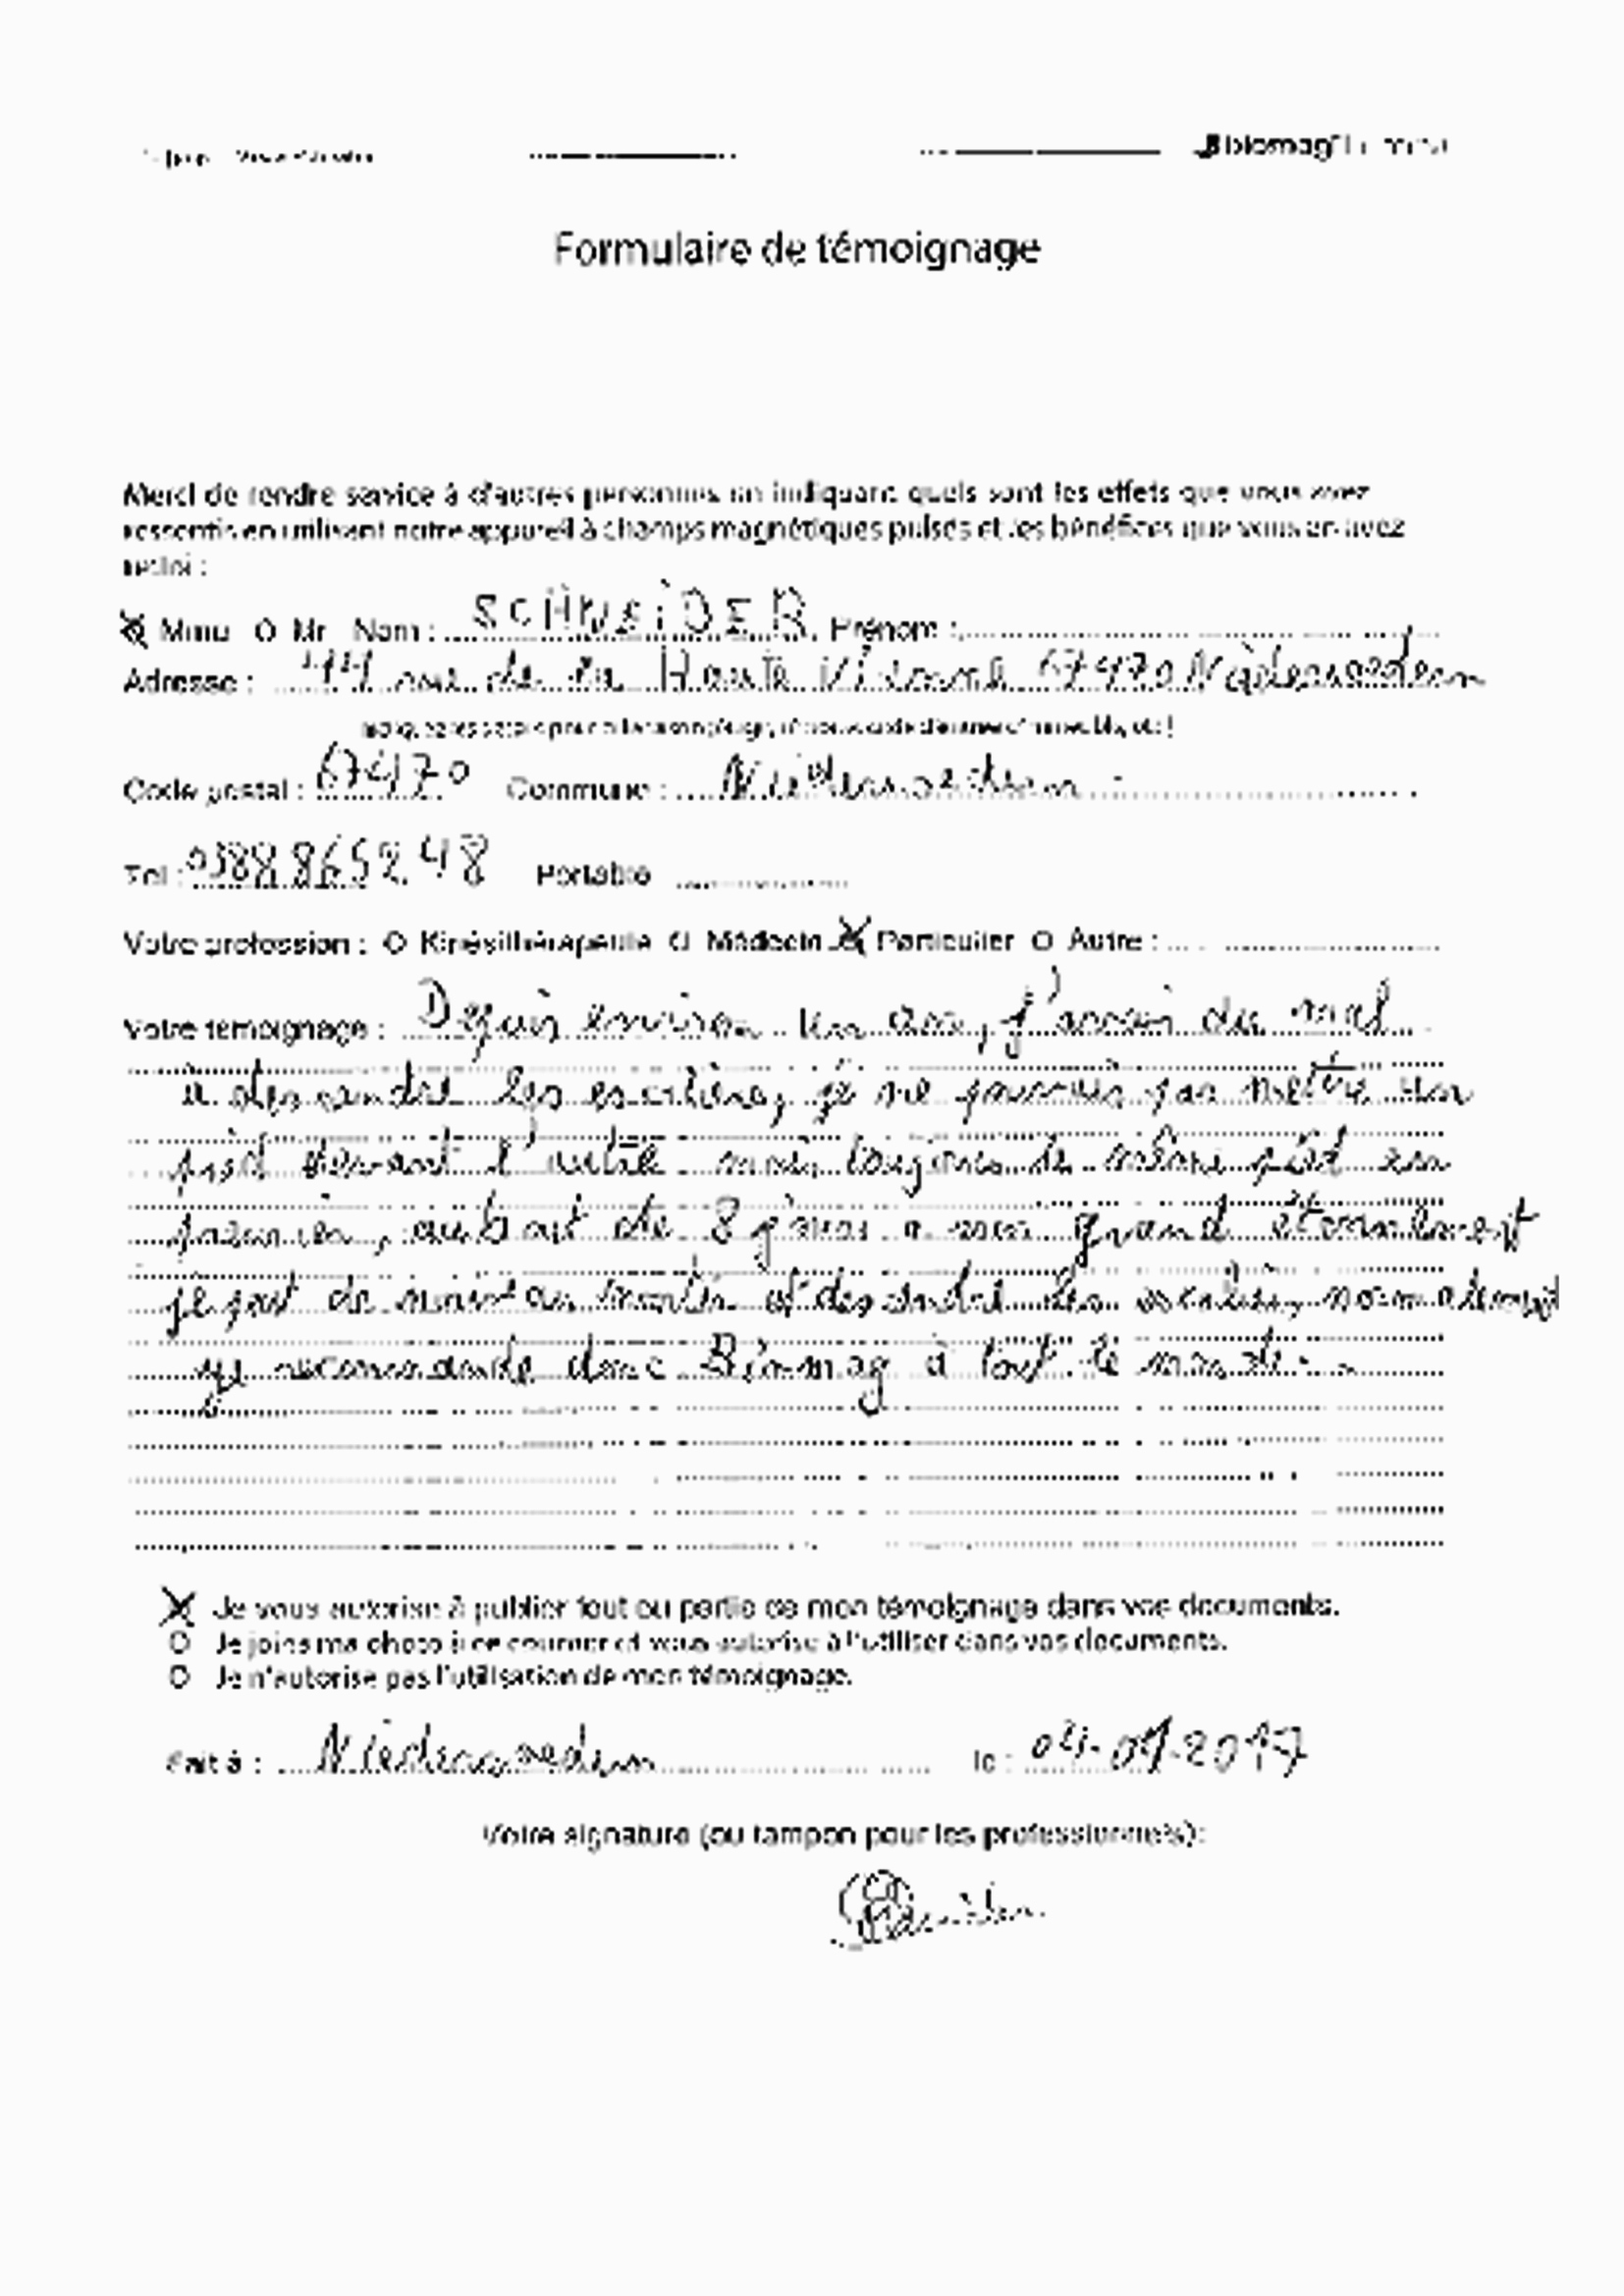 Formulaire de témoignage
Merci de rendre service à d'autres personnes en indiquant quels sont les effets que vous avez
ressentis en utilisant notre appareil à champs magnétiques pulsés et les bénéfices que vous en avez
Mme O Mr Nom : SCHNEIDER Prénom :
Adresse : rue de la Haute 67470 Niederroedern
Code postal : 67470 Commune : Niederroedern
Tel : 0388865248 Portable
Votre profession : O Kinésithérapeute O Médecin Particulier O Autre :
Votre témoignage : Depuis environ un an, j'avais du mal
à descendre les escaliers, je ne pouvais pas mettre un
pied devant l'autre mais toujours le même pied en
premier, au bout de 8 jours a mon grand étonnement
je monter et descendre les
recommande donc Biomag à tout le monde.
Je vous autorise à publier tout ou partie de mon témoignage dans vos documents.
O Je joins ma photo à ce courrier et vous autorise à l'utiliser dans vos documents.
O Je n'autorise pas l'utilisation de mon témoignage.
Fait à : Niederroedern le : 04-01-2017
Votre signature (ou tampon pour les professionnels):